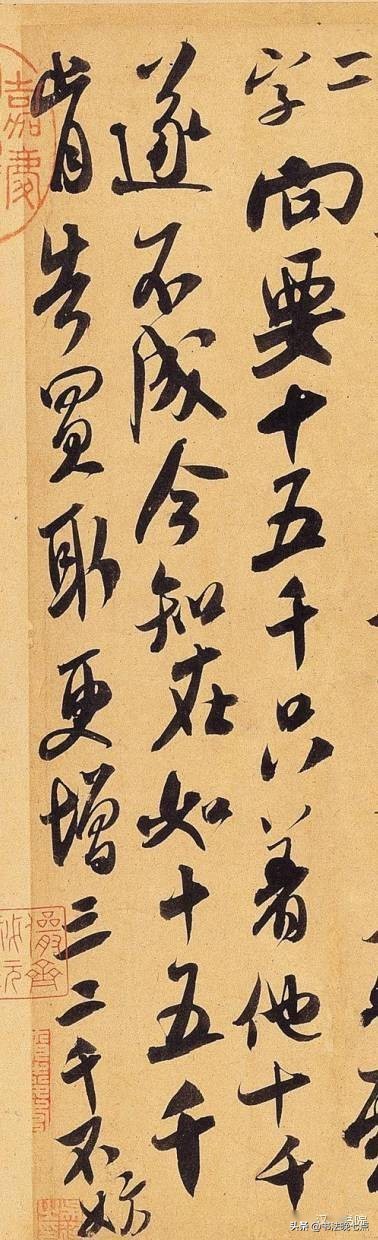 二
字向要十五千只着他十千
遂不成今知在如十五千
肯告買取更增三二千不妨
嘉慶
儼齋
头条 @书法晚七点